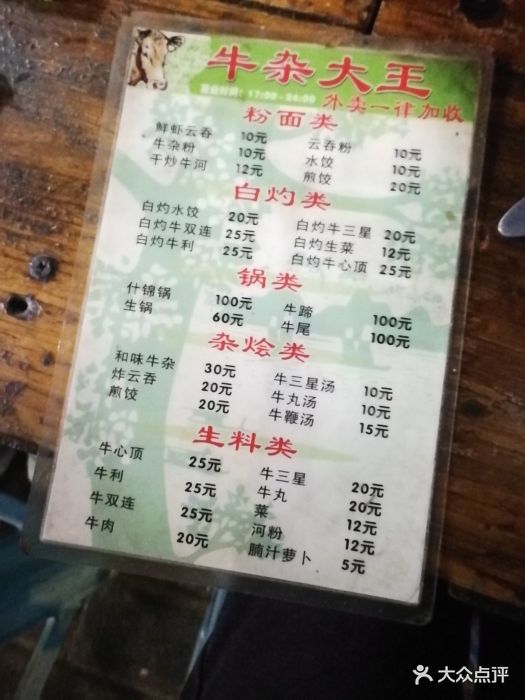 牛杂大王
营业时间：17:00-24:00
外卖一律加收
粉面类
鲜虾云吞 10元 云吞粉 10元
牛杂粉 10元 水饺 10元
干炒牛河 12元 煎饺 20元
白灼类
白灼水饺 20元 白灼牛三星 20元
白灼牛双连 25元 白灼生菜 12元
白灼牛利 25元 白灼牛心顶 25元
锅类
什锦锅 100元 牛蹄 100元
生锅 60元 牛尾 100元
杂烩类
和味牛杂 30元 牛三星汤 10元
炸云吞 20元 牛丸汤 10元
煎饺 20元 牛鞭汤 15元
生料类
牛心顶 25元 牛三星 20元
牛利 25元 牛丸 20元
牛双连 25元 菜 12元
牛肉 20元 河粉 12元
腩汁萝卜 5元
大众点评